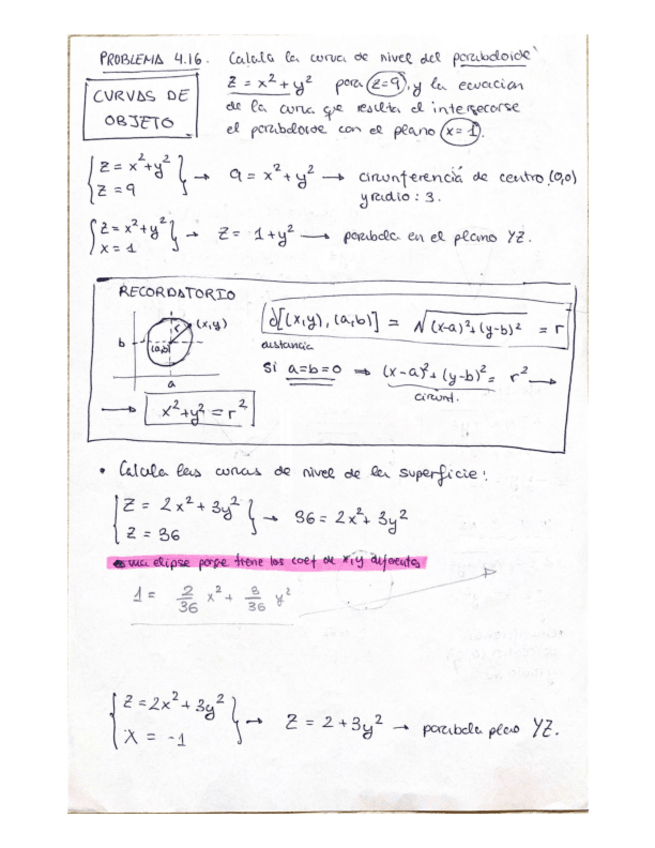 PROBLEMA 4.16. Calcula la curva de nivel del paraboloide
CURVAS DE OBJETO
z = x² + y² para z=9, y la ecuacion
de la curva que resulta al intersecarse
el paraboloide con el plano x=1.
{z = x²+y² z = 9} → 9 = x² + y² → circunferencia de centro (0,0)
y radio: 3.
{z = x²+y² x = 1} → z = 1+y² → parabola en el plano YZ.
RECORDATORIO
r (x,y)
b (a,b)
a
d[(x,y), (a,b)] = √(x-a)²+(y-b)² = r
distancia
Si a=b=0 ⇒ (x-a)²+(y-b)² = r² →
circunf.
→ x²+y² = r²
• Calcula las curvas de nivel de la superficie:
{z = 2x² + 3y² z = 36} → 36 = 2x² + 3y²
es una elipse porque tiene los coef de x,y diferentes
1 = 2/36 x² + 3/36 y²
{z = 2x² + 3y² x = -1} → z = 2 + 3y² → parabola plano YZ.